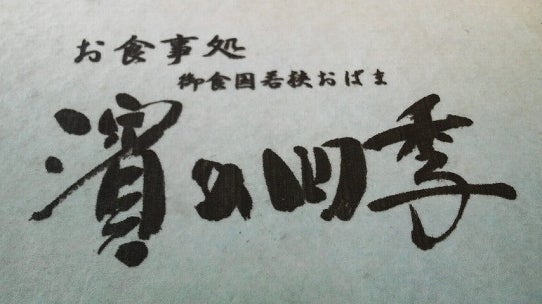 お食事処
御食国若狭おばま
濱の四季